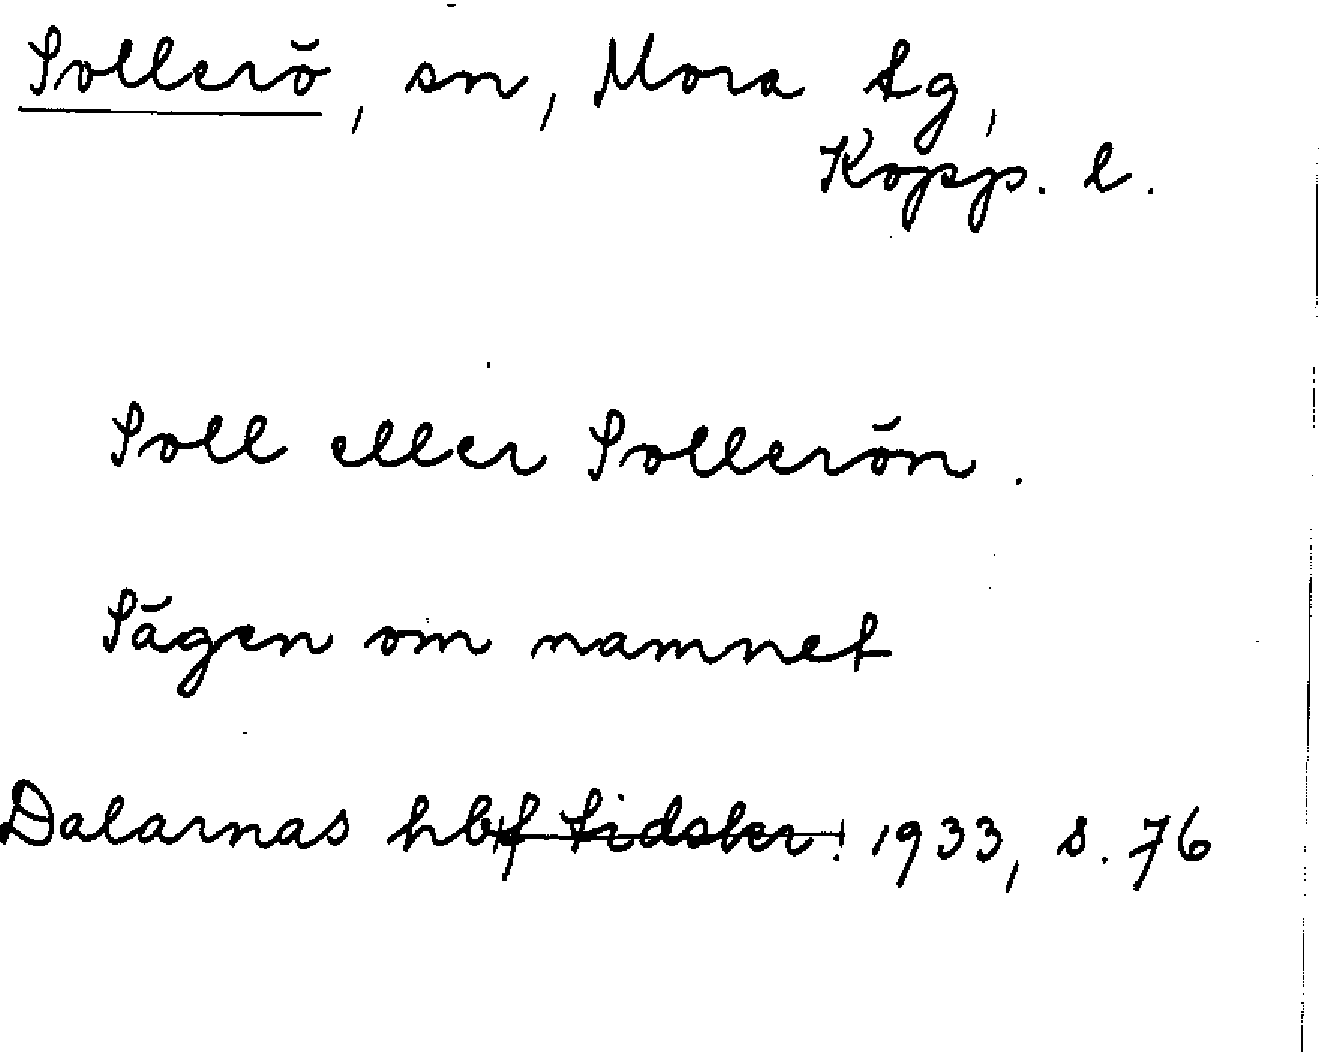 Sollerö, sn, Mora tg,
Kopp. l.
Soll eller Sollerön.
Sägen om namnet
Dalarnas hbf tidsber. 1933, s. 76